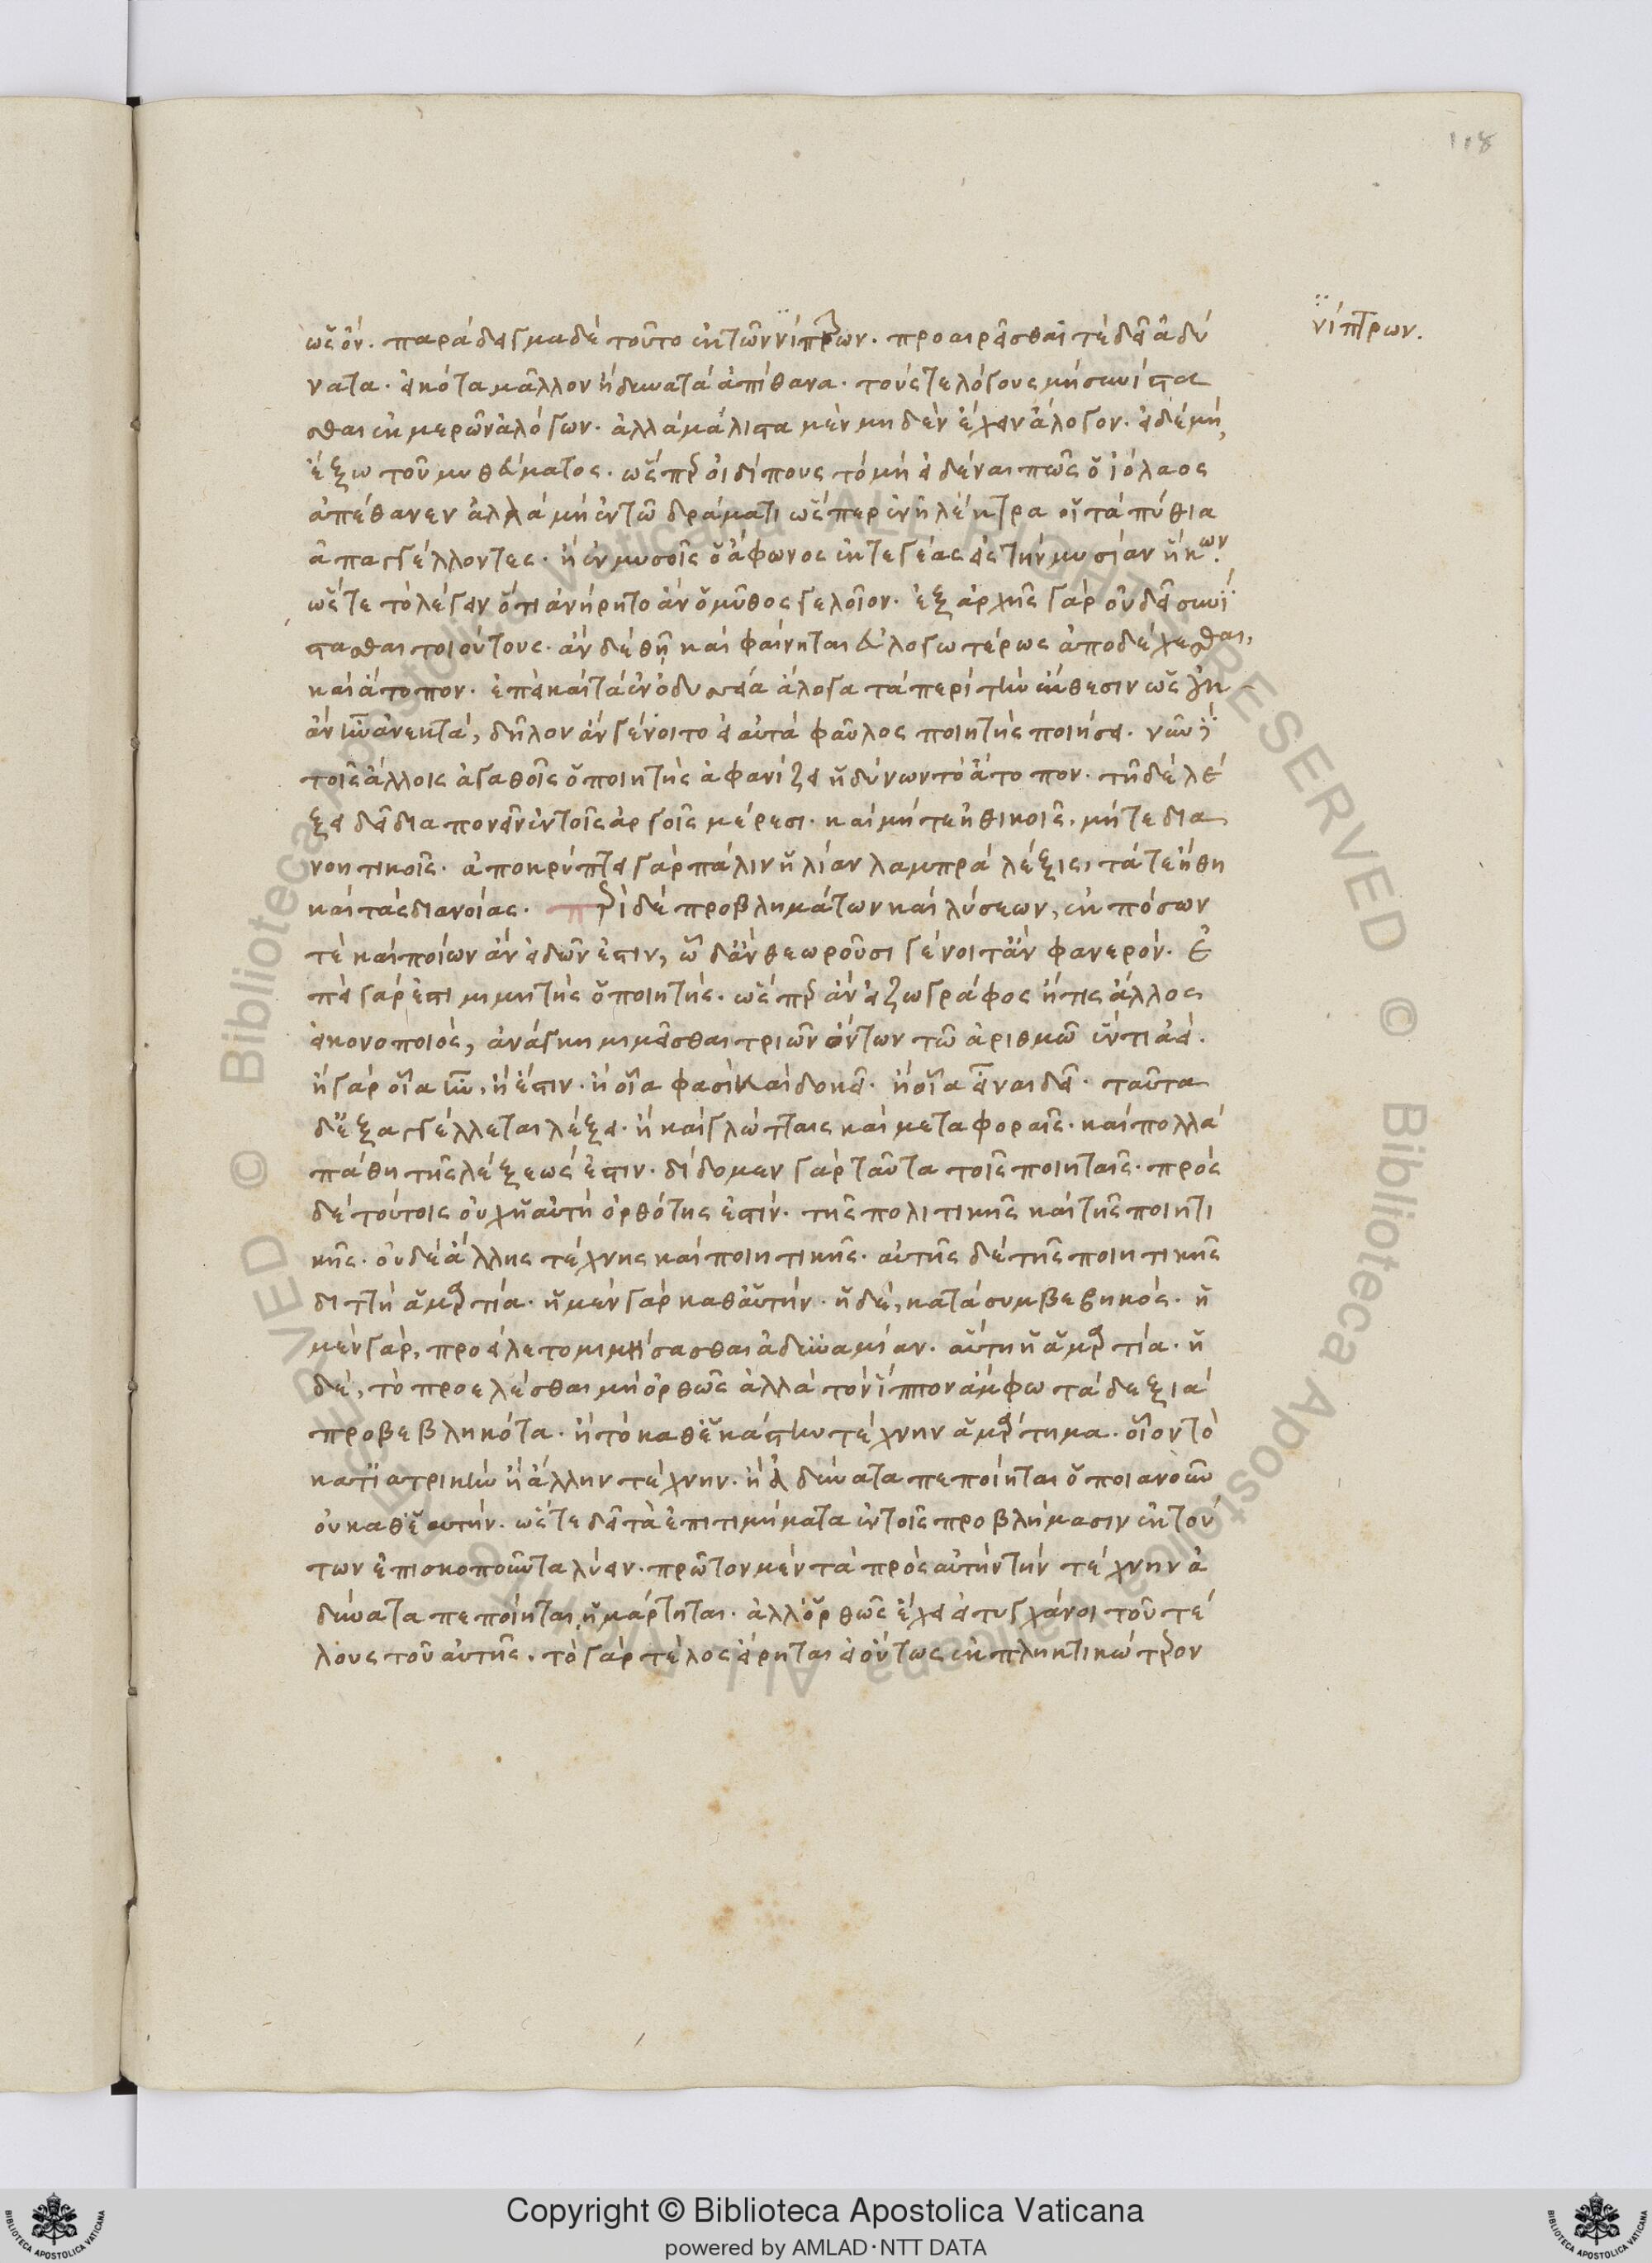 118
νίπτρων.
ὡς ὄν. παράδειγμα δὲ τοῦτο ἐκ τῶν νίπτρων. προαιρεῖσθαί τε δεῖ ἀδύ
νατα. εἰκότα μᾶλλον ἢ δυνατὰ ἀπίθανα. τούς τε λόγους μὴ συνίστα
σθαι ἐκ μερῶν ἀλόγων. ἀλλὰ μάλιστα μὲν μηδὲν ἔχειν ἄλογον. εἰ δὲ μή,
ἔξω τοῦ μυθεύματος. ὥσπερ οἰδίπους τὸ μὴ εἰδέναι πῶς ὁ ἰόλαος
ἀπέθανεν ἀλλὰ μὴ ἐν τῶ δράματι ὥσπερ ἐν ἠλέκτρα οἱ τὰ πύθια
ἀπαγγέλλοντες. ἢ ἐν μυσοῖς ὁ ἄφωνος ἐκ τεγέας εἰς τὴν μυσίαν ἥκων.
ὥστε τὸ λέγειν ὅτι ἀνήρητο ἂν ὁ μῦθος γελοῖον. ἐξ ἀρχῆς γὰρ οὐ δεῖ συνί
στασθαι τοιούτους. ἂν δὲ θῆ καὶ φαίνηται εὐλογωτέρως ἀποδέχεσθαι,
καὶ ἄτοπον. ἐπεὶ καὶ τὰ ἐν ὀδυσσεία ἄλογα τὰ περὶ τὴν ἔκθεσιν ὡς οὐκ
ἂν ἦν ἀνεκτά, δῆλον ἂν γένοιτο εἰ αὐτὰ φαῦλος ποιητὴς ποιήσει. νῦν δὲ
τοῖς ἄλλοις ἀγαθοῖς ὁ ποιητὴς ἀφανίζει ἡδύνων τὸ ἄτοπον. τῆ δὲ λέ
ξει δεῖ διαπονεῖν ἐν τοῖς ἀργοῖς μέρεσι. καὶ μήτε ἠθικοῖς. μήτε δια
νοητικοῖς. ἀποκρύπτει γὰρ πάλιν ἡ λίαν λαμπρὰ λέξις, τά τε ἤθη
καὶ τὰς διανοίας. περὶ δὲ προβλημάτων καὶ λύσεων, ἐκ πόσων
τε καὶ ποίων ἂν εἰδῶν ἐστιν, ὧδ' ἂν θεωροῦσι γένοιτ' ἂν φανερόν. ἐ
πεὶ γάρ ἐστι μιμητὴς ὁ ποιητής. ὥσπερ ἂν εἰ ζωγράφος ἤ τις ἄλλος
εἰκονοποιός, ἀνάγκη μιμεῖσθαι τριῶν ὄντων τῶ ἀριθμῶ ἕν τι ἀεί.
ἢ γὰρ οἷα ἦν, ἢ ἔστιν. ἢ οἷα φασὶ καὶ δοκεῖ. ἢ οἷα εἶναι δεῖ. ταῦτα
δ' ἐξαγγέλλεται λέξει. ἢ καὶ γλώτταις καὶ μεταφοραῖς. καὶ πολλὰ
πάθη τῆς λέξεώς ἐστιν. δίδομεν γὰρ ταῦτα τοῖς ποιηταῖς. πρὸς
δὲ τούτοις οὐχ ἡ αὐτὴ ὀρθότης ἐστὶν. τῆς πολιτικῆς καὶ τῆς ποιητι
κῆς. οὐδὲ ἄλλης τέχνης καὶ ποιητικῆς. αὐτῆς δὲ τῆς ποιητικῆς
διττὴ ἁμαρτία. ἡ μὲν γὰρ καθ' αὑτήν. ἡ δὲ, κατὰ συμβεβηκός. ἡ
μὲν γὰρ, προείλετο μιμήσασθαι ἀδυναμίαν. αὐτὴ ἡ ἁμαρτία. ἡ
δὲ, τὸ προελέσθαι μὴ ὀρθῶς ἀλλὰ τὸν ἵππον ἄμφω τὰ δεξιὰ
προβεβληκότα. ἢ τὸ καθ' ἑκάστην τέχνην ἁμάρτημα. οἷον τὸ
κατ' ἰατρικὴν ἢ ἄλλην τέχνην. ἢ ἀδύνατα πεποίηται ὁποιανοῦν
οὐ καθ' ἑαυτήν. ὥστε δεῖ τὰ ἐπιτιμήματα ἐν τοῖς προβλήμασιν ἐκ τού
των ἐπισκοποῦντα λύειν. πρῶτον μὲν τὰ πρὸς αὐτὴν τὴν τέχνην ἀ
δύνατα πεποίηται, ἡμάρτηται. ἀλλ' ὀρθῶς ἔχει εἰ τυγχάνοι τοῦ τέ
λους τοῦ αὐτῆς. τὸ γὰρ τέλος εἴρηται εἰ οὕτως ἐκπληκτικώτερον
Copyright © Biblioteca Apostolica Vaticana
powered by AMLAD·NTT DATA